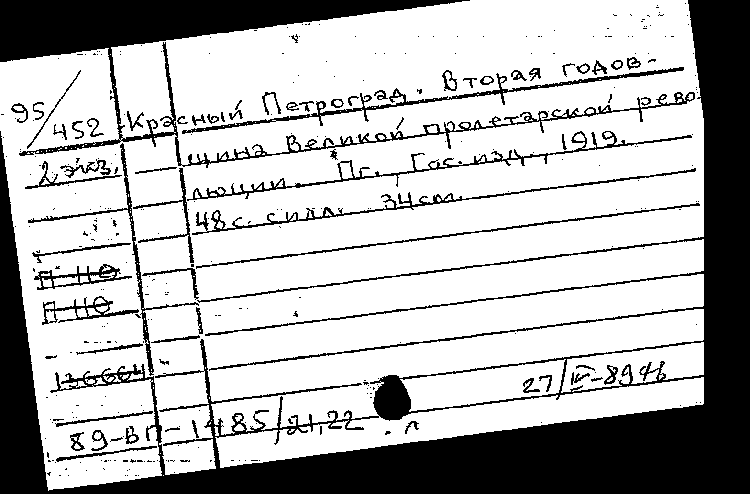 95/452
Красный Петроград. Вторая годов-
щина Великой пролетарской рево
2 экз.
люции. Пг., Гос. изд., 1919.
48 с. с илл. 34 см.
П-110
П-110
136664
27/IV-89
89-ВП-1485/21,22